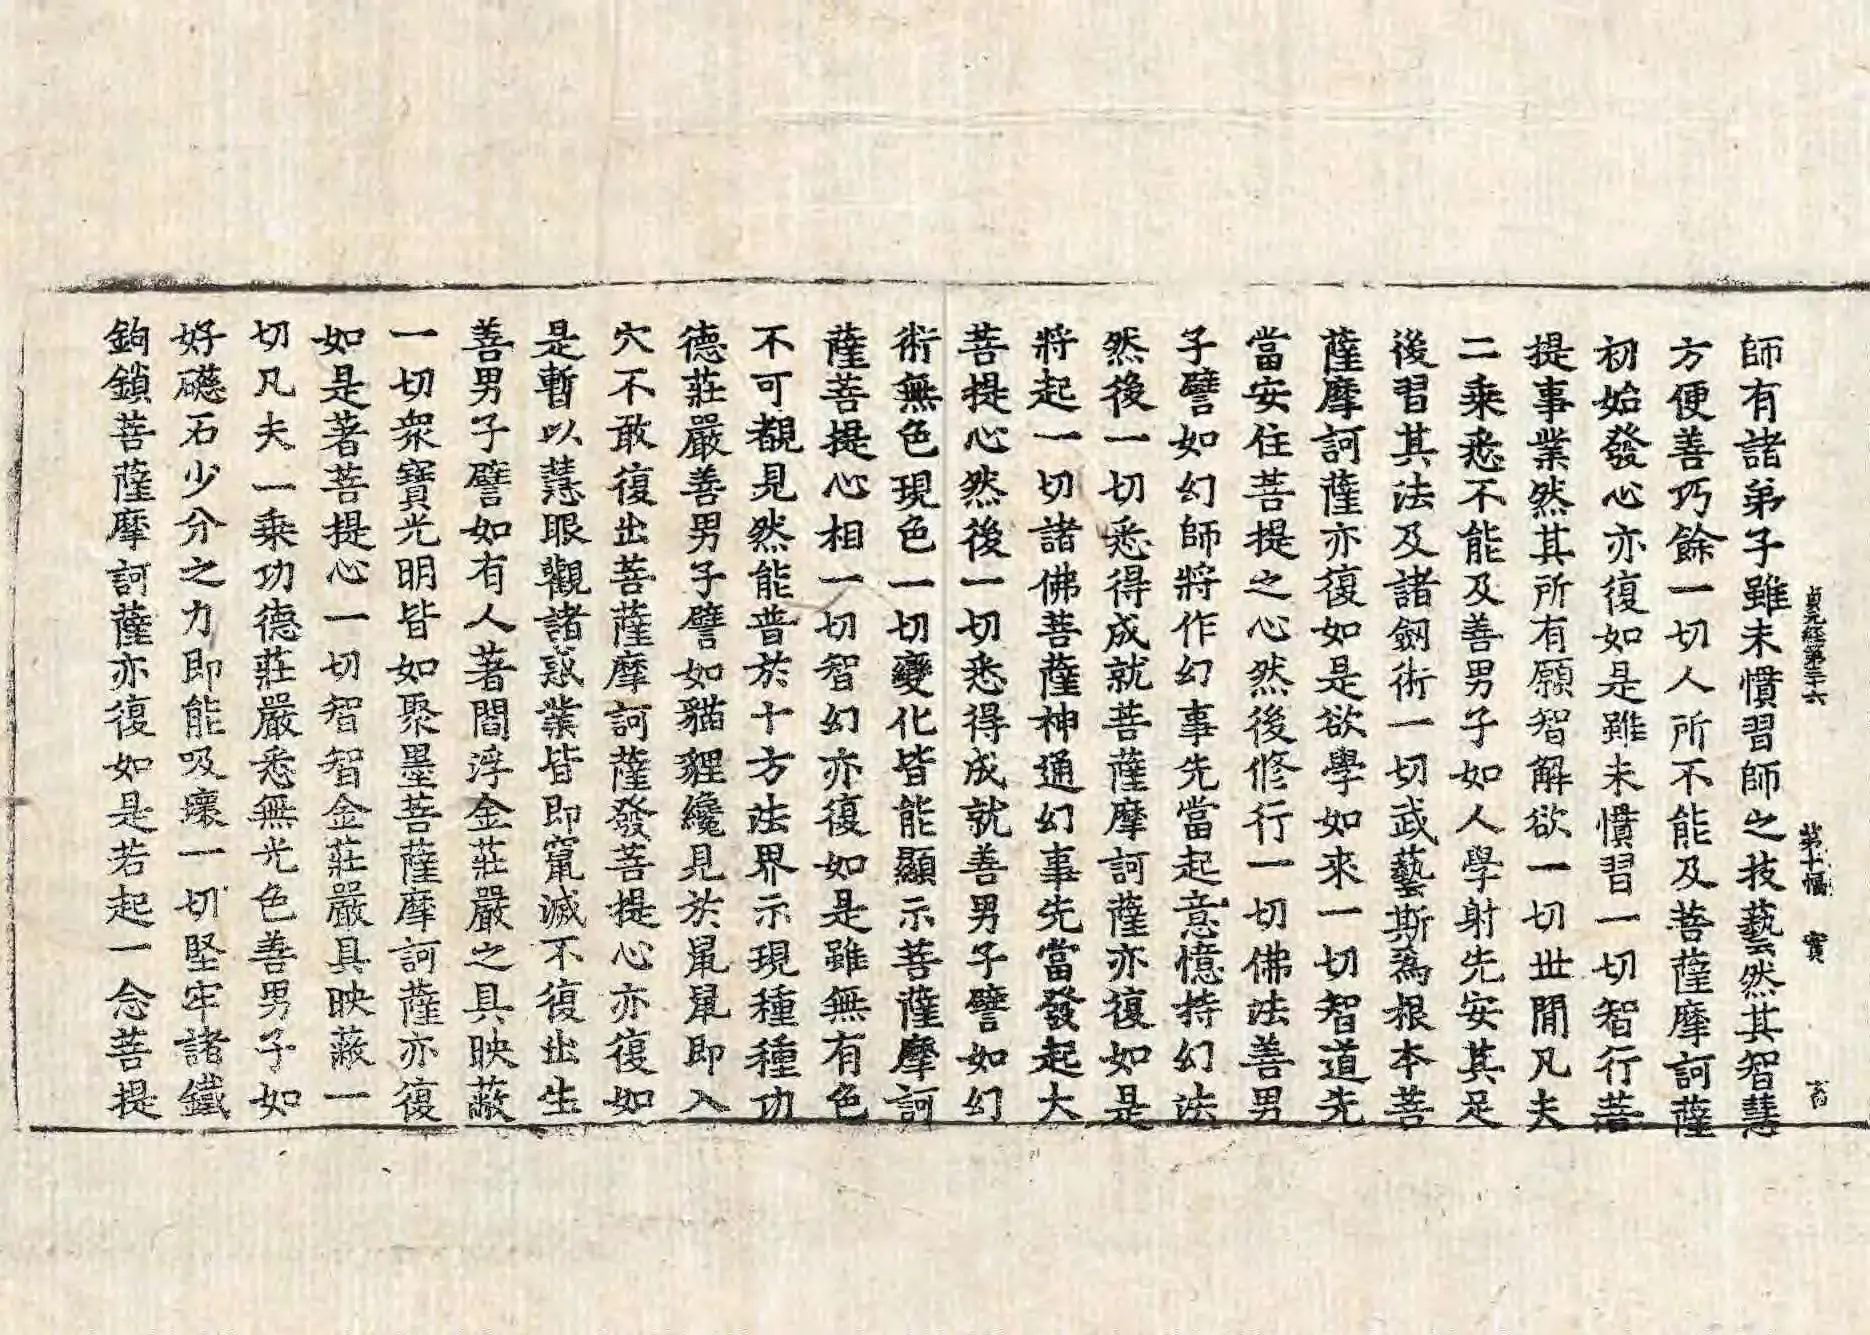 貞元經第三十六 第十幅 實
師有諸弟子雖未慣習師之技藝然其智慧
方便善巧餘一切人所不能及菩薩摩訶薩
初始發心亦復如是雖未慣習一切智行菩
提事業然其所有願智解欲一切世間凡夫
二乘悉不能及善男子如人學射先安其足
後習其法及諸劒術一切武藝斯為根本菩
薩摩訶薩亦復如是欲學如來一切智道先
當安住菩提之心然後修行一切佛法善男
子譬如幻師將作幻事先當起意憶持幻法
然後一切悉得成就菩薩摩訶薩亦復如是
將起一切諸佛菩薩神通幻事先當發起大
菩提心然後一切悉得成就善男子譬如幻
術無色現色一切變化皆能顯示菩薩摩訶
薩菩提心相一切智幻亦復如是雖無有色
不可覩見然能普於十方法界示現種種功
德莊嚴善男子譬如貓貍纔見於鼠鼠即入
穴不敢復出菩薩摩訶薩發菩提心亦復如
是暫以慧眼觀諸惑業皆即竄滅不復出生
善男子譬如有人著閻浮金莊嚴之具映蔽
一切眾寶光明皆如聚墨菩薩摩訶薩亦復
如是著菩提心一切智智金莊嚴具映蔽一
切凡夫二乘功德莊嚴悉無光色善男子如
好礠石少分之力即能吸壞一切堅牢諸鐵
鉤鎖菩薩摩訶薩亦復如是若起一念菩提